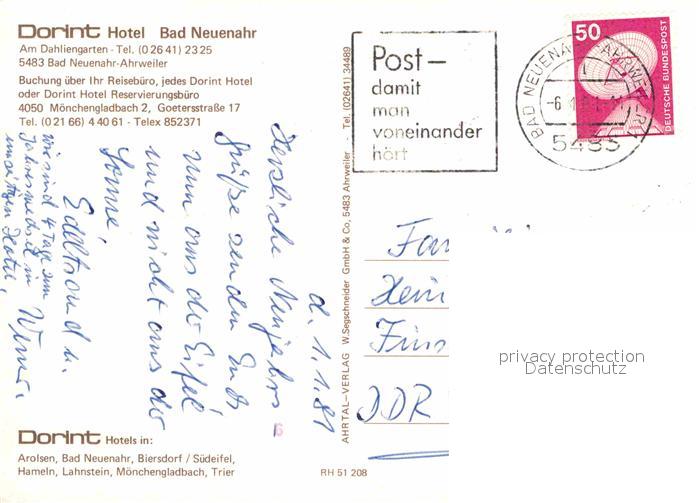 Dorint Hotel Bad Neuenahr
Am Dahliengarten - Tel. (0 26 41) 23 25
5483 Bad Neuenahr-Ahrweiler
Buchung über Ihr Reisebüro, jedes Dorint Hotel
oder Dorint Hotel Reservierungsbüro
4050 Mönchengladbach 2, Goetersstraße 17
Tel. (0 21 66) 4 40 61 - Telex 852371
d. 1.1.81
Herzliche Neujahrs
grüße senden Euch
nun aus der Eifel
und nicht aus der
Sonne,
Edeltraud u.
Werner
wir sind 4 Tage zum
Jahreswechsel in
Hotel,
6
Dorint Hotels in:
Arolsen, Bad Neuenahr, Biersdorf / Südeifel,
Hameln, Lahnstein, Mönchengladbach, Trier
RH 51 208
AHRTAL-VERLAG W.Segschneider GmbH & Co, 5483 Ahrweiler - Tel. (02641) 34489
Post-
damit
man
voneinander
hört
BAD NEUENAHR-AHRWEILER
5483
50
DEUTSCHE BUNDESPOST
Fam
Hein
Fins
DDR
privacy protection
Datenschutz